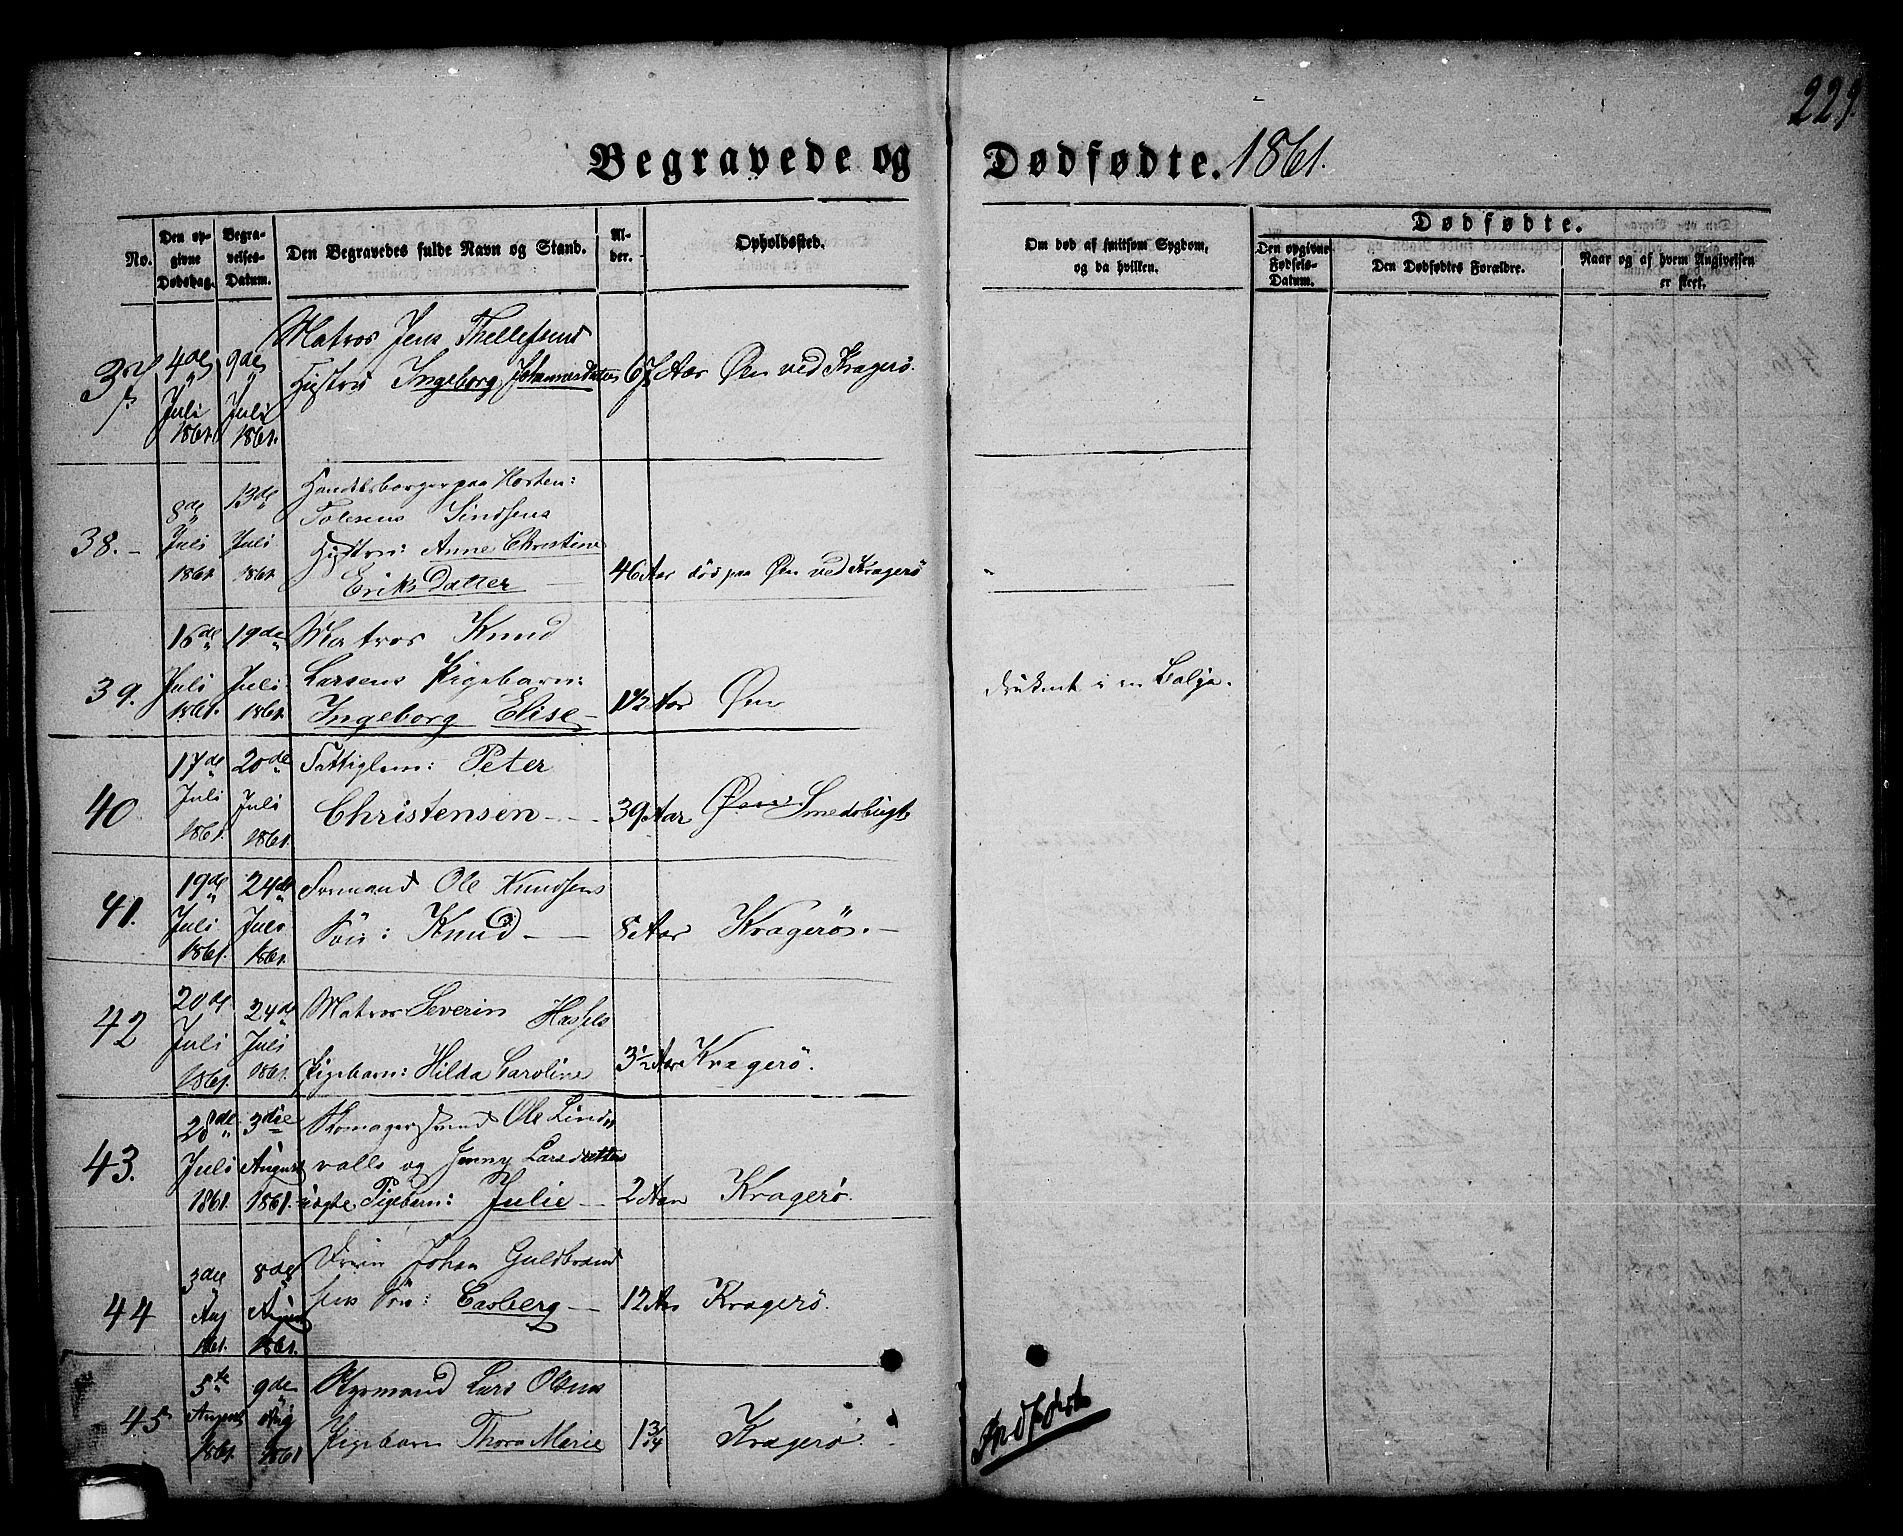 229.
Begravede og Dødfødte. 1861.
No.
Den opgivne Dødsdag.
Begravelses-Datum.
Den Begravedes fulde Navn og Stand.
Alder.
Opholdssted.
Om død af smitsom Sygdom, og da hvilken.
Dødfødte.
Den opgivne Fødsels-Datum.
Den Dødfødtes Forældre.
Naar og af hvem Angivelsen er skeet.
37.
4de Juli 1861.
9de Juli 1861.
Matros Jens Thellefsens
Hustru Ingeborg Johannesdatter
67 Aar
Øen ved Kragerø.
38.
8de Juli 1861.
13de Juli 1861.
Handelsborger paa Horten:
Tolesens
Hustru: Anne Christine
Eriks Datter
46 Aar
død paa Øen ved Kragerø
39.
16de Juli 1861.
19de Juli 1861.
Matros Knud
Larsens Pigebarn:
Ingeborg Elise
1 1/2 Aar
Øen
druknet i en Balja.
40
17de Juli 1861.
20de Juli 1861.
Fattiglem: Peter
Christensen
39 Aar
Øen Smedsbugt
41.
19de Juli 1861.
24de Juli 1861.
Formand Ole Knudsens
Søn: Knud
8 Aar
Kragerø.
42
20de Juli 1861.
24de Juli 1861.
Matros Severin Hassels
Pigebarn: Hilda Caroline
3 1/2 Aar
Kragerø.
43.
28de Juli 1861.
3die August 1861.
Skomagersvend Ole Linde
valls og Jenny Larsdatters
uægte Pigebarn: Julie
2 Aar
Kragerø.
44
3die Aug 1861.
8de August 1861.
Johan Guldbrand
sens Søn: Casberg
12 Aar
Kragerø.
45
5te August 1861.
9de Aug 1861
Styrmand Lars Olsens
Pigebarn Thora Marie
1 3/4
Kragerø.
Indført